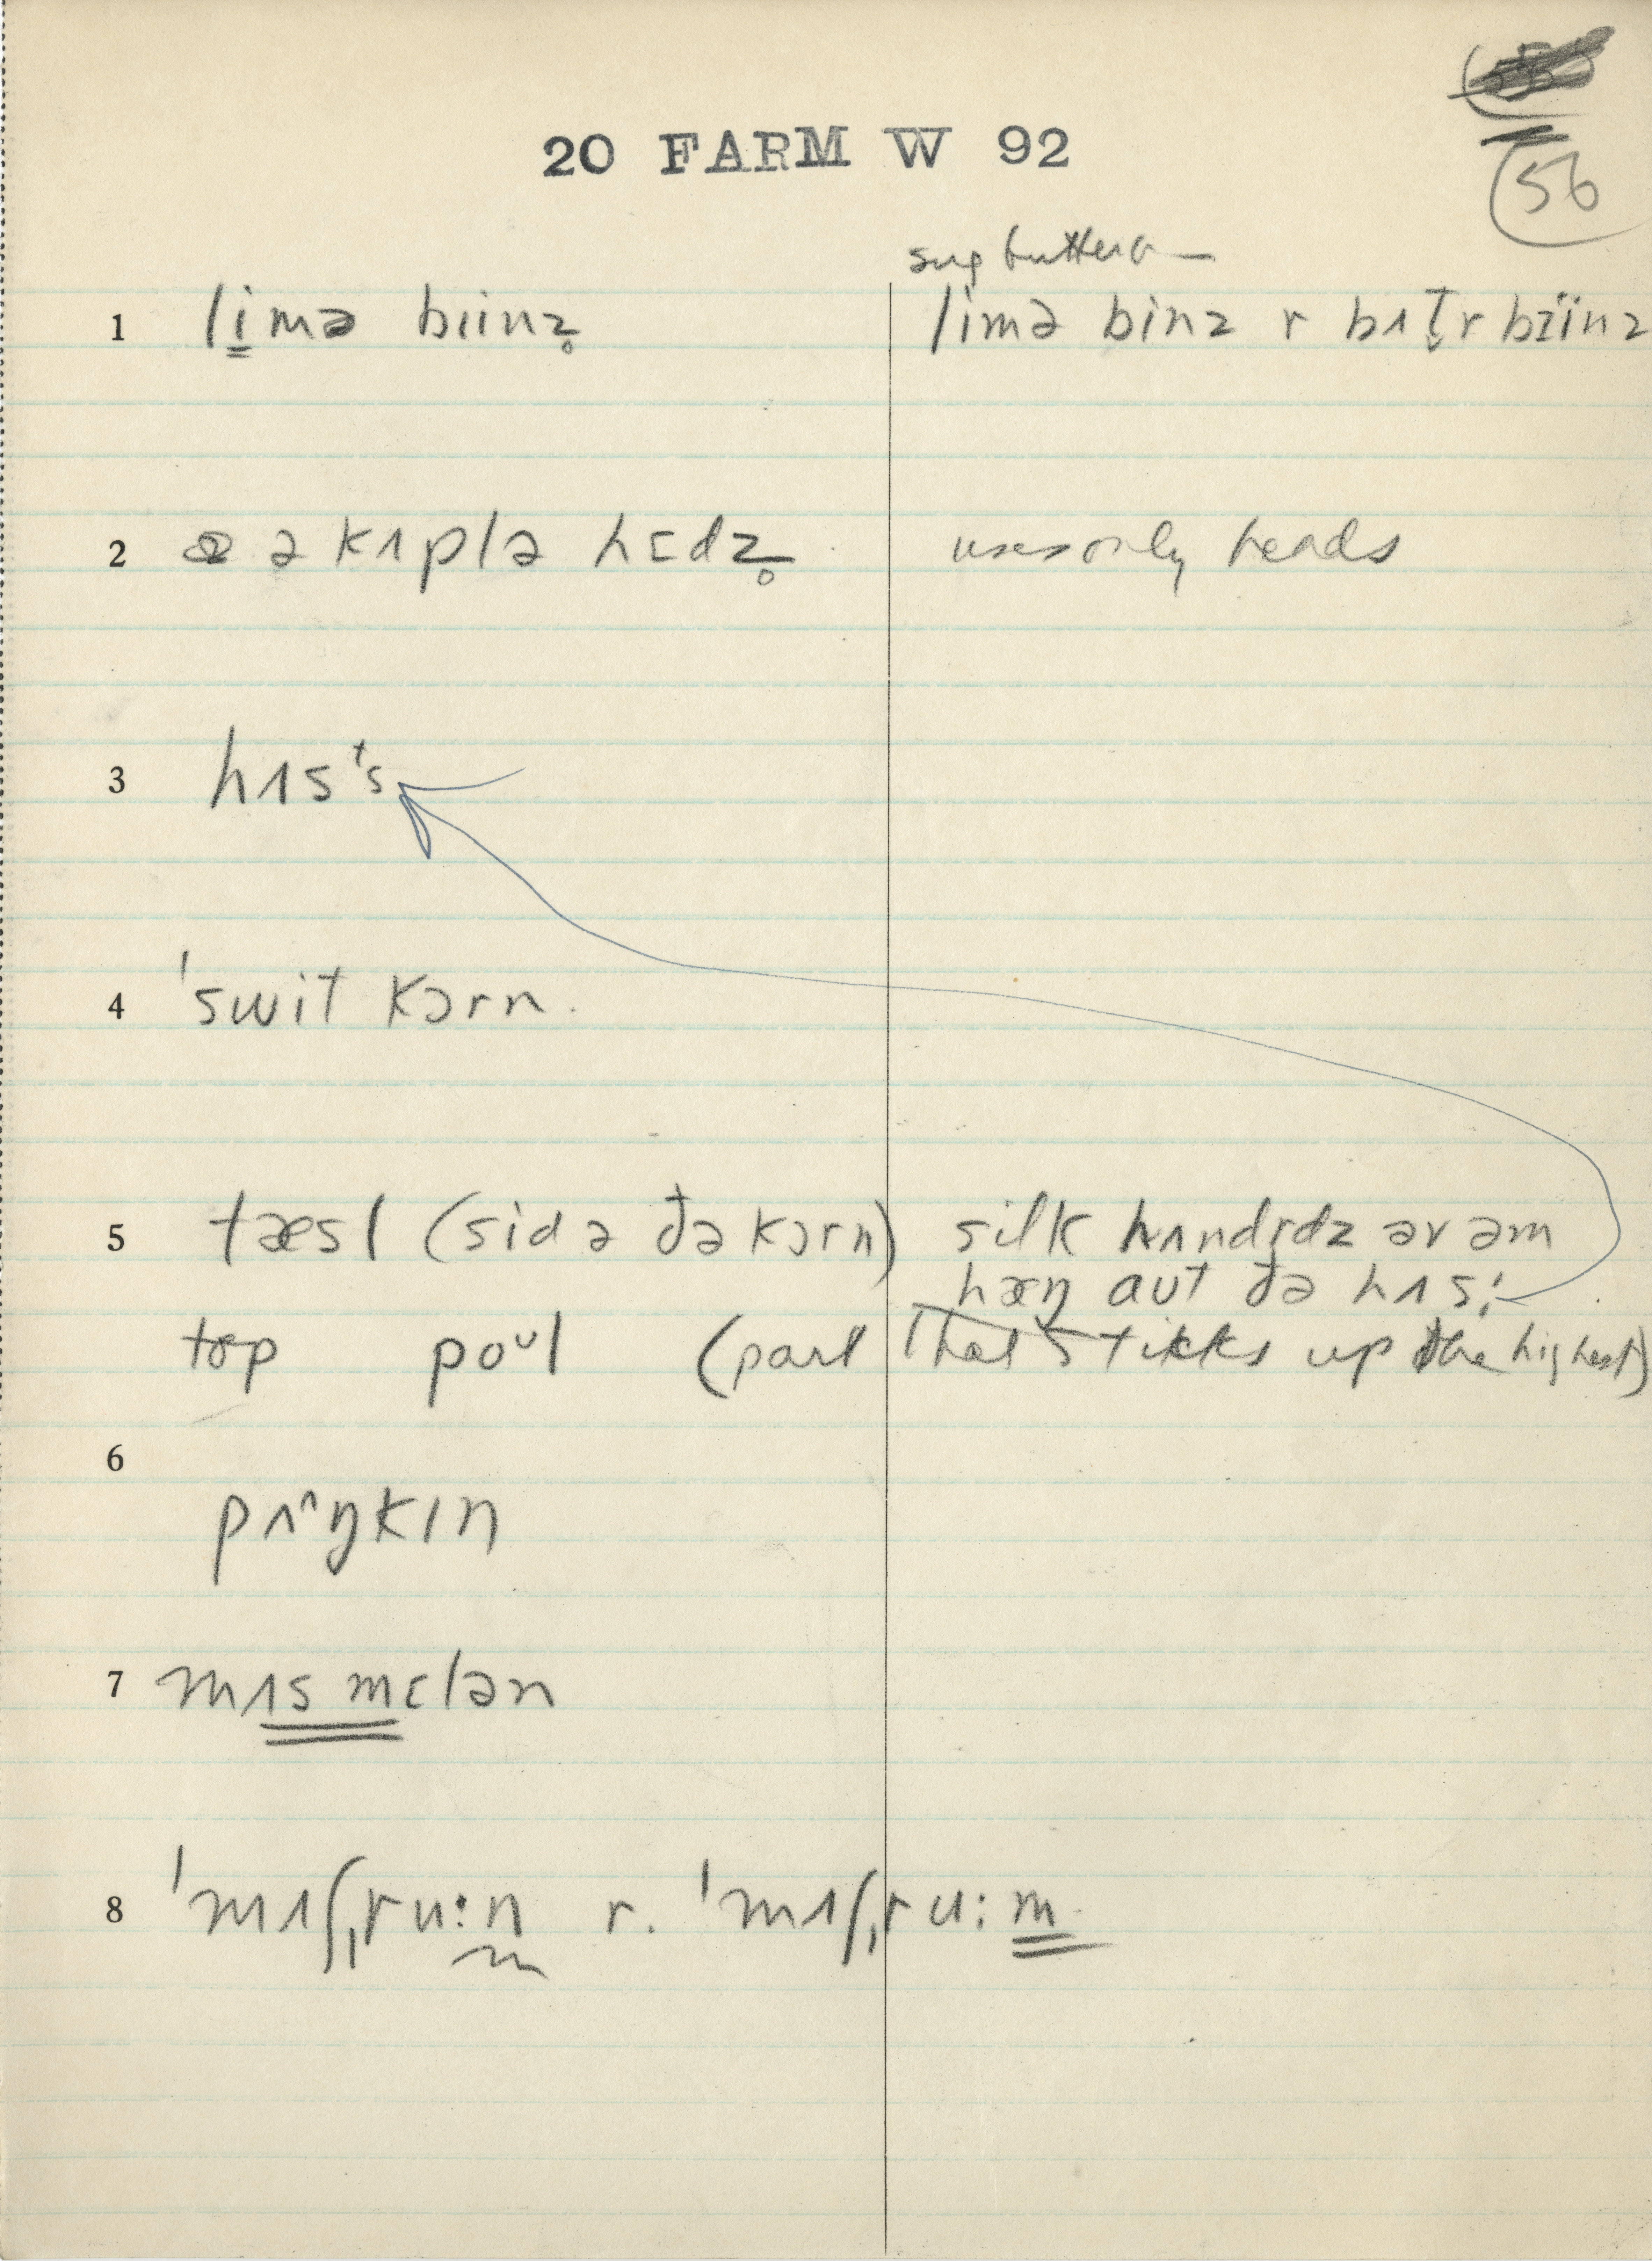 20 FARM W 92
56
sug butter
1 limə biinz̥ limə binz r bʌt̬r bɪ̈inz
2 ə kʌplə hɛdz̥ uses only heads
3 hʌsᵗs
4 ˈswit kɔrn
5 tæsl (sid ə ðə kɔrn) silk hʌndrdz əv əm
hæŋ aut ðə hʌs
top poᵘl (part that stikks up the highest)
6
pʌ^ŋkɪŋ
7 mʌs mɛlən
8 ˈmʌʃˌru:n r. ˈmʌʃˌru:m